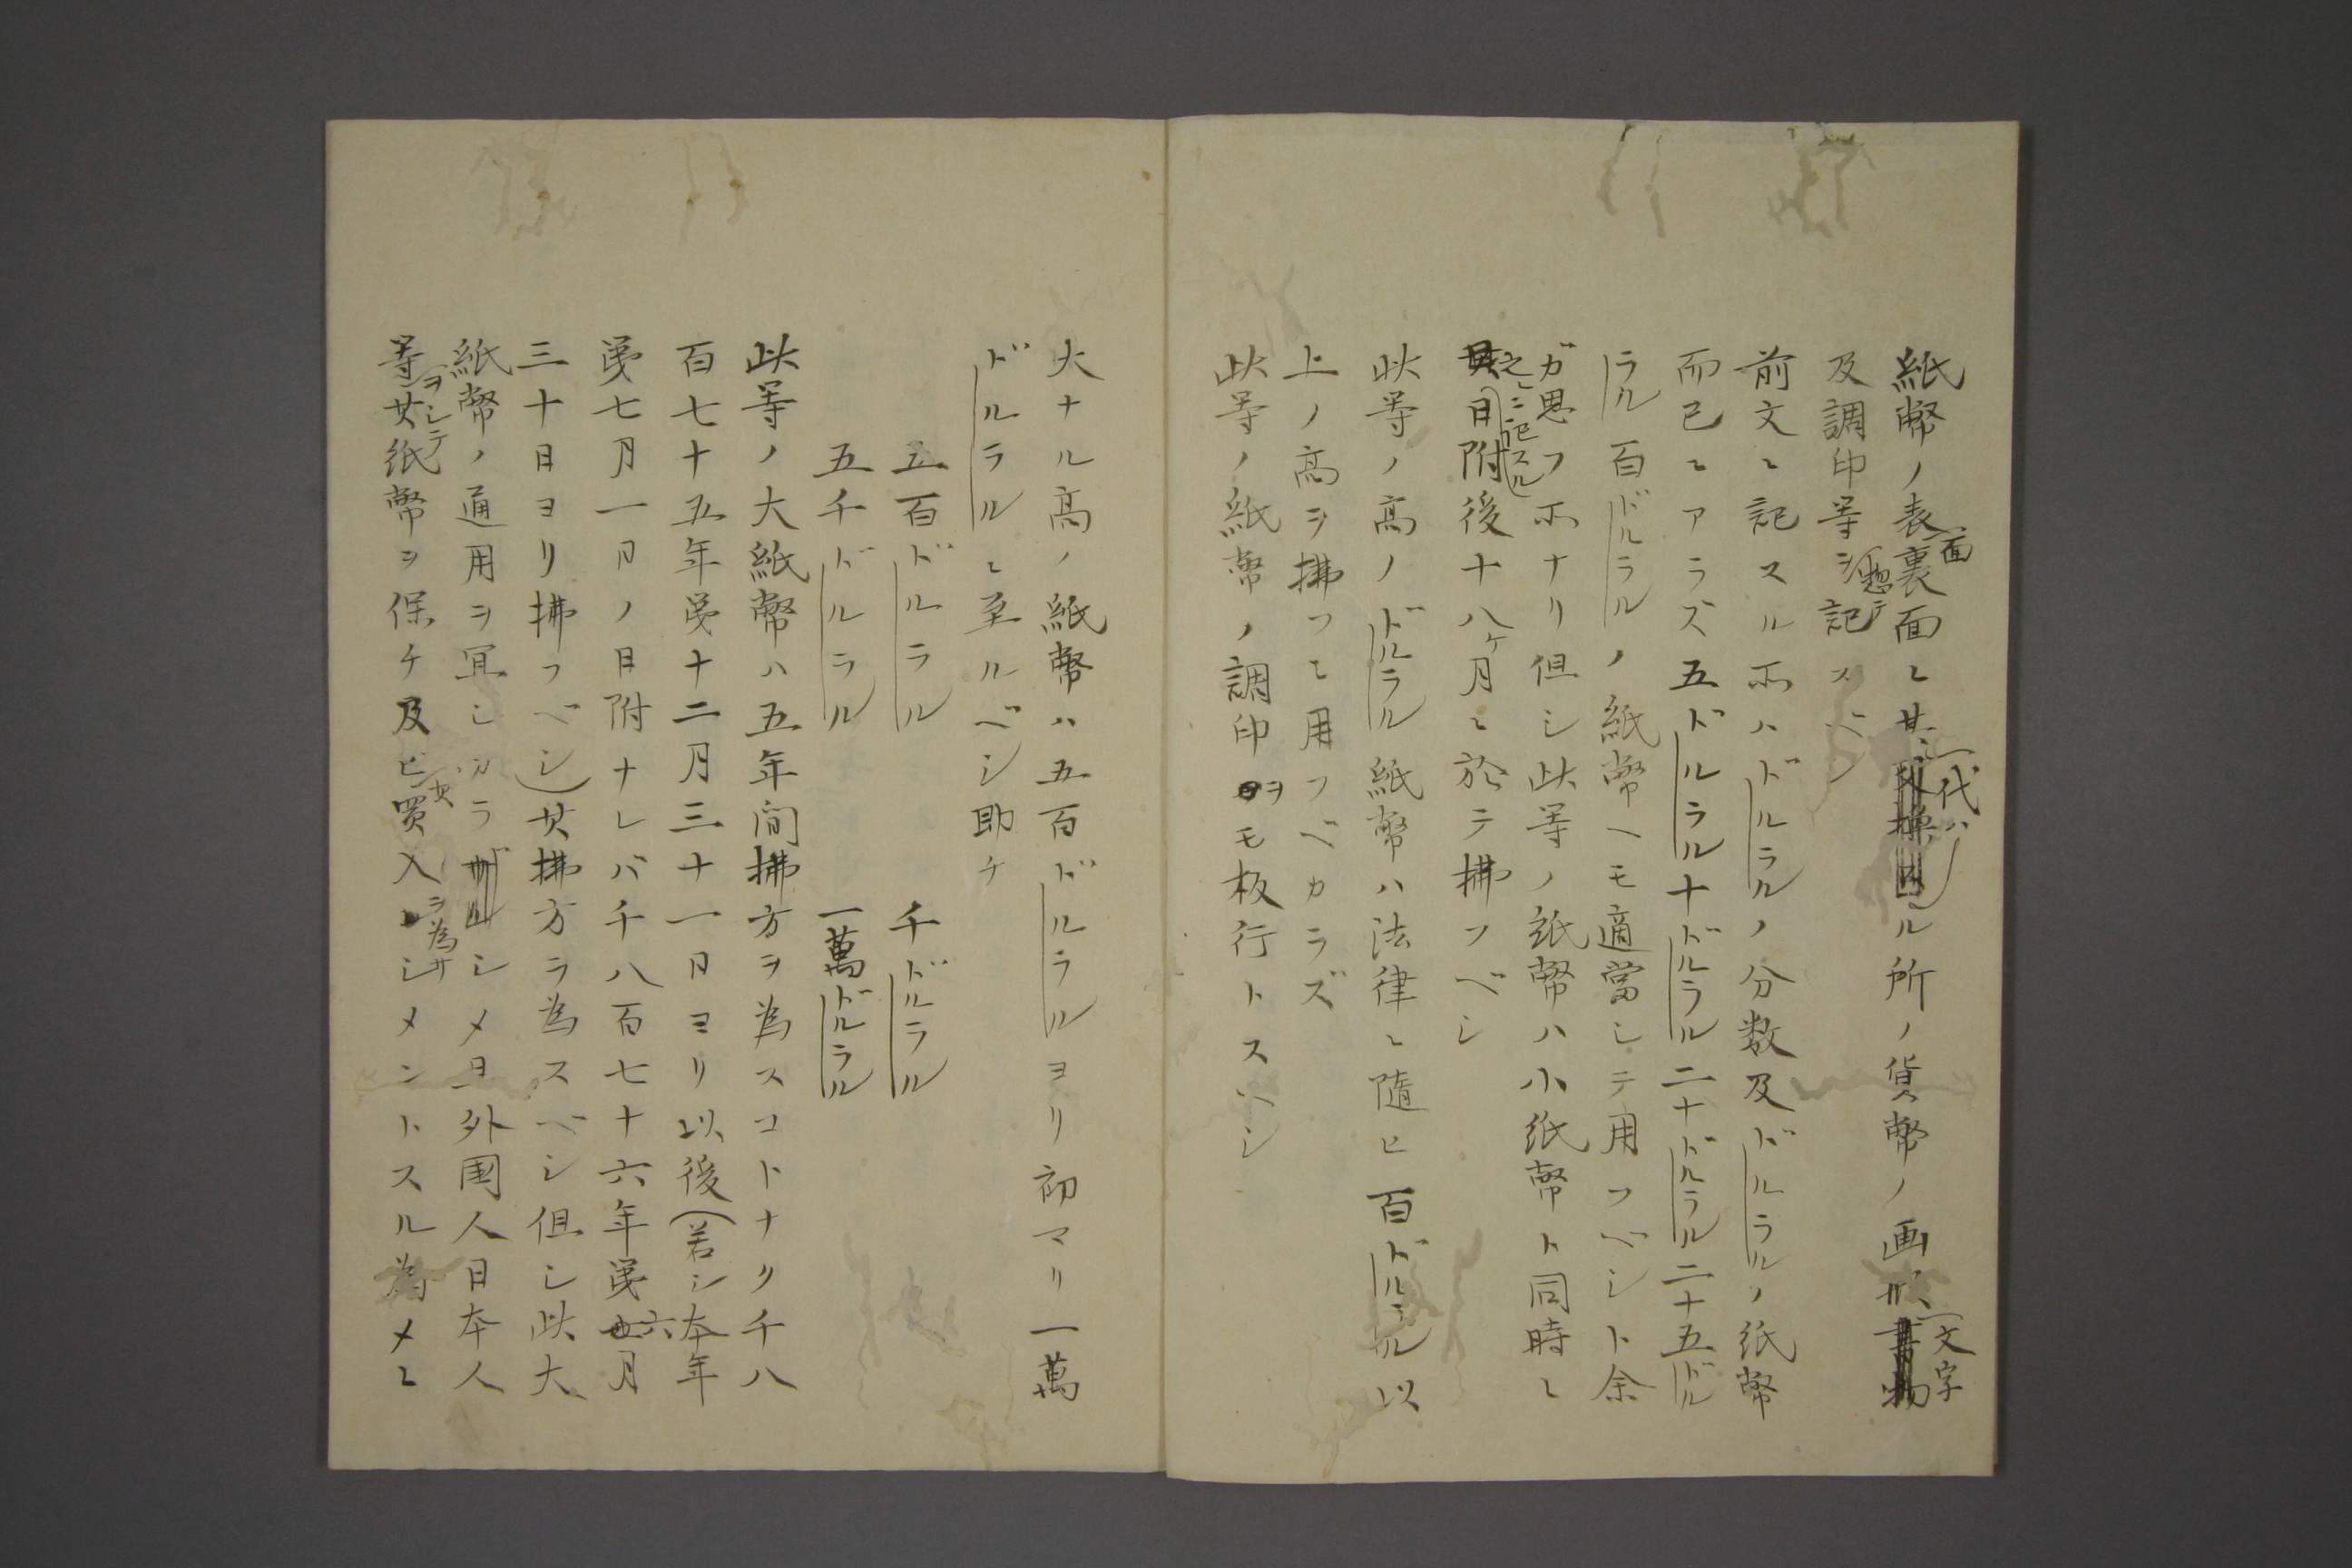 紙幣ノ表面裏面ニ其代ハル所ノ貨幣ノ画形文字
及調印等ヲ惣テ記スベシ
前文ニ記スル所ハドルラルノ分数及ドルラルノ紙幣
而已ニアラズ五ドルラル十ドルラル二十ドルラル二十五ドル
ラル百ドルラルノ紙幣ヘモ適當シテ用フベシト余
ガ思フ所ナリ但シ此等ノ紙幣ハ小紙幣ト同時ニ
之ニ記スル日附後十八ケ月ニ於テ拂フベシ
此等ノ高ノドルラル紙幣ハ法律ニ隨ヒ百ドルラル以
上ノ高ヲ拂フニ用フベカラズ
此等ノ紙幣ノ調印ヲモ板行トスヘシ
大ナル高ノ紙幣ハ五百ドルラルヨリ初マリ一萬
ドルラルニ至ルベシ助チ
五百ドルラル 千ドルラル
五千ドルラル 一萬ドルラル
此等ノ大紙幣ハ五年間拂方ヲ為スコトナク千八
百七十五年第十二月三十一日ヨリ以後（若シ本年
第七月一日ノ日附ナレバ千八百七十六年第六月
三十日ヨリ拂フベシ）其拂方ヲ為スベシ但シ此大
紙幣ノ通用ヲ冝シカラシメ且外国人日本人
等ヲシテ其紙幣ヲ保チ及ビ其買入ヲ為サシメントスル為メニ